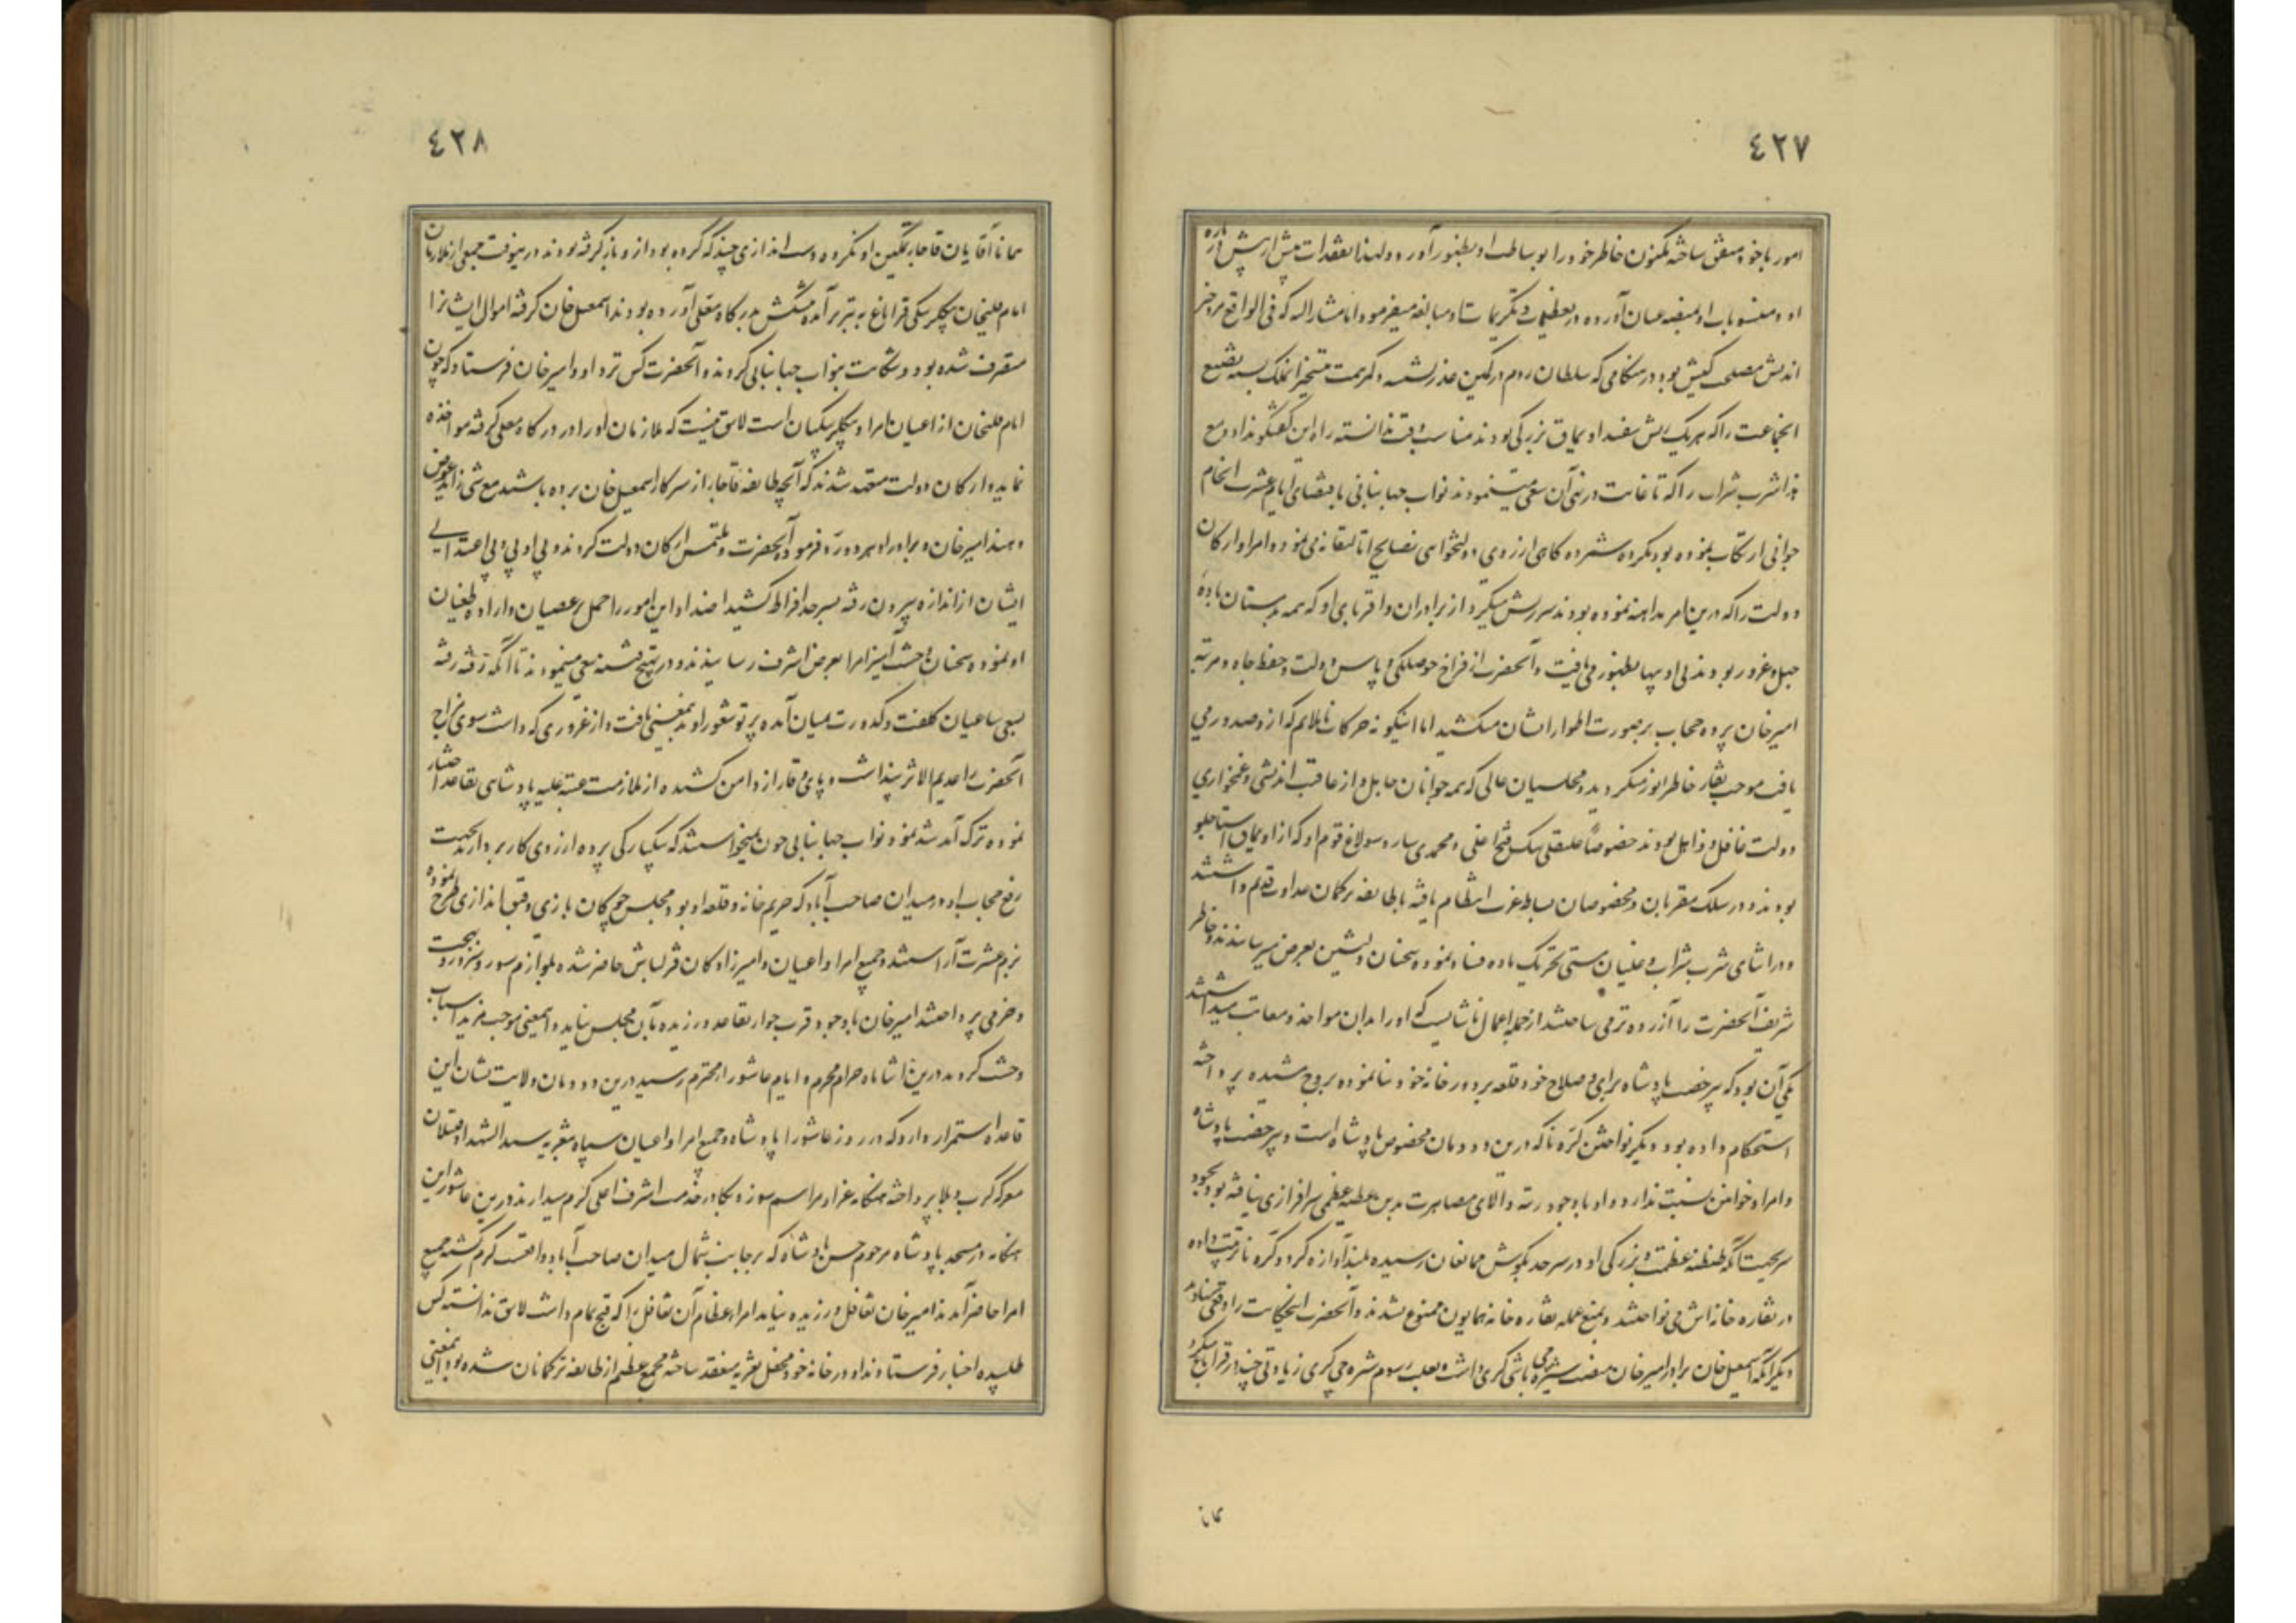 ٤٢٧
امور با خود متفق ساخته مکنون خاطر خود را بوساطت او بظهور آورد و لهذا تفقدات بیش از پیش در باره
او و منسوبان او بمنصه عیان آورده در تعظیمات و تکریمات شان مبالغه میفرمود اما مشارالیه که فی الواقع مرد خیر
اندیش مصلحت کیش بود در هنگامی که سلطان روم در کمین غدر نشسته و کمر همت بتسخیر این ملک بسته تضییع
انجماعت را که هر یک ریش سفید اویماق بزرگی بودند مناسب وقت ندانسته راه این گفتگو نداد و مع
هذا شرب شراب را که تا غایت در نهی آن سعی مینمودند نواب جهانبانی باقتضای ایام عشرت انجام
جوانی ارتکاب نموده بود مکروه شمرده گاهی از روی دولتخواهی نصایح اتالیقانه می نمود و امرا و ارکان
دولت را که درین امر مداهنه نموده بودند سرزنش میکرد از برادران و اقربای او که همه مستان باده
جهل و غرور بودند بی ادبیها بظهور می یافت و آنحضرت از فراخ حوصلگی و پاس دولت و حفظ جاه و مرتبه
امیرخان پرده حجاب بر صورت اطوار ایشان میکشید اما اینگونه حرکات ناملایم که از و صدور می
یافت موجب نقار خاطر انور میگردید و مجلسیان عالی که همه جوانان جاهل و از عاقبت اندیشی و غمخواری
دولت غافل و ذاهل بودند خصوصاً علیقلی بیک فتح اغلی و محمدی سارو سولاغ قوم او که از اویماق استاجلو
بودند و در سلک مقربان و مخصوصان بساط عزت انتظام یافته با طایفه ترکمان عداوت قدیم داشتند
در اثنای شرب شراب و غلیان مستی تحریک ماده فساد نموده سخنان دلنشین بعرض میرسانیدند و خاطر
شریف آنحضرت را آزرده تر می ساختند از جمله اعمال ناشایست که او را بدان مواخذ و معاتب میداشتند
یکی آن بود که بیرخصت پادشاه برای و صلاح خود قلعه بر دور خانه خود بنا نموده بروج مشیده پرداخته
استحکام داده بود و دیگر نواختن کره نا که درین دودمان مخصوص پادشاه است و بیرخصت پادشاه
و امرا و خوانین نسبت ندارد و او با وجود رتبه والای مصاهرت بدین عطیه عظمی سرافرازی نیافته بود بخود
سر بجهت آنکه طنطنه عظمت و بزرگی او در سرحد بگوش مخالفان رسیده بلند آوازه گردد کره نا ترتیب داده
در نقاره خانه اش می نواختند و بمنع عمله نقاره خانه همایون ممنوع نشدند و آنحضرت اینحکایت را وقعی ننهادند
دیگر آنکه اسمعیل خان برادر امیرخان منصب شیره چی باشی گری داشت و بعلت رسوم شره چی گری زیادتی چند در قراباغ میکرد
همانا
٤٢٨
همانا آقایان قاجار تمکین او نکرده دست اندازی چند که کرده بود از و باز گرفته بودند در ینوقت جمعی از ملازمان
امام قلیخان بیگلربیگی قراباغ به تبریز آمده پیشکش بدرگاه معلی آورده بودند اسمعیل خان گرفته اموال ایشانرا
متصرف شده بود و شکایت بنواب جهانبانی کردند و آنحضرت کس نزد او و امیر خان فرستاد که چون
امام قلیخان از اعیان امرا و بیگلربیگیان است لایق نیست که ملازمان او را در درگاه معلی گرفته مواخذه
نماید و ارکان دولت متعهد شدند که آنچه طایفه قاجار از سرکار اسمعیل خان برده باشند مع شئ زاید عوض
دهند امیرخان و برادر او هر دو رد فرموده آنحضرت و ملتمس ارکان دولت کردند و بی ادبی و بی اعتدالی
ایشان از اندازه بیرون رفته بسر حد افراط کشید اضداد این امور را حمل بر عصیان و اراده طغیان
او نموده سخنان وحشت آمیز امرا بعرض اشرف رسانیدند و در تهییج فتنه سعی مینمودند تا آنکه رفته رفته
بسعی ساعیان کلفت و کدورت بمیان آمده پرتو شعور او نیز بمعنی یافت و از غروری که داشت سوی مزاج
آنحضرت را عدیم الاثر پنداشت و پای وقار از دامن کشیده از ملازمت عتبه علیه پادشاهی تقاعد اختیار
نموده ترک آمد شد نمود نواب جهانبانی چون نمیخواستند که بیکبارگی پرده از روی کار بردارند بجهت
رفع حجاب او در میدان صاحب آباد که حریم خانه و قلعه او بود مجلس چوگان بازی و قبق اندازی طرح نموده
بزم عشرت آراستند و جمیع امرا و اعیان و امیرزادگان قزلباش حاضر شده بلوازم سور و سرور و بهجت
و خرمی پرداختند امیرخان با وجود قرب جوار تقاعد ورزیده بآن مجلس نیامد و اینمعنی موجب مزید اسباب
وحشت گردید درین اثنا ماه حرام محرم و ایام عاشورا محترم رسید درین دودمان ولایت نشان این
قاعده استمرار دارد که در روز عاشورا پادشاه و جمیع امرا و اعیان سپاه بتعزیه سید الشهدا و قتیلان
معرکه کرب و بلا پرداخته هنگامه عزا و مراسم سوز و بکا در خدمت اشرف اعلی گرم میدارند درین عاشورا این
هنگامه در مسجد پادشاه مرحوم حسن پادشاه که بر جانب شمال میدان صاحب آباد واقعست گرم گشته جمیع
امرا حاضر آمدند امیرخان تغافل ورزیده نیامد امراء عظام آن تغافل را که قبح تمام داشت لایق ندانسته کس
طلبیده اخبار فرستادند او در خانه خود محفل تعزیه منعقد ساخته مجمع عظیم از طایفه ترکمانان شده بود اینمعنی